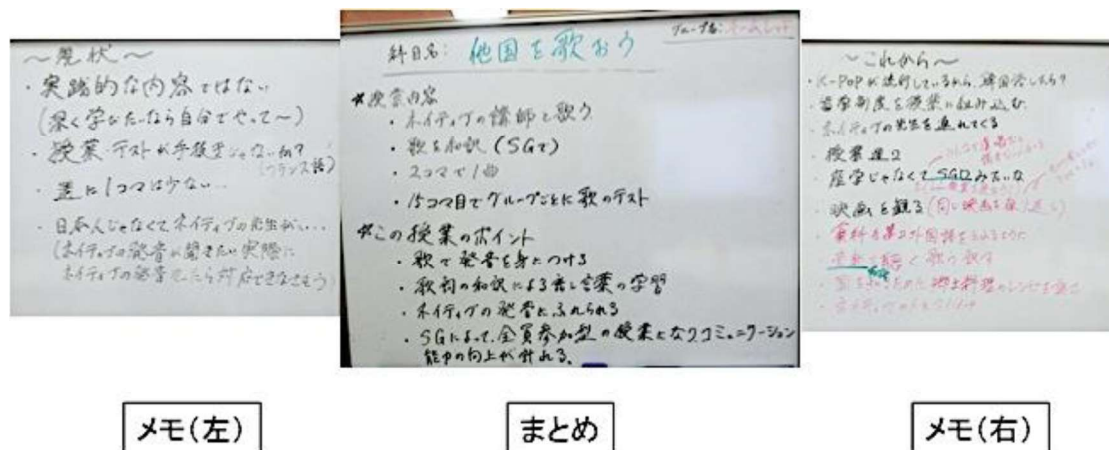 ～現状～
・実践的な内容ではない
(深く学びたいなら自分でやって～)
・授業・テストが手抜きじゃないか?
(フランス語)
・週に1コマは少ない…
・日本人じゃなくてネイティブの先生がいい…
(ネイティブの発音が聞きたい 実際に
ネイティブの発音でしたら対応できなさそう)
科目名: 他国を歌おう
グループ名:
*授業内容
・ネイティブの講師と歌う
・歌を和訳 (SGで)
・2コマで1曲
・15コマ目でグループごとに歌のテスト
*この授業のポイント
・歌で発音を身につける
・歌詞の和訳による話し言葉の学習
・ネイティブの発音にふれられる
・SGによって、全員参加型の授業となりコミュニケーション
能力の向上が計れる。
～これから～
・K-POPが流行しているから、韓国語したら?
・制度を授業に組み込む
・ネイティブの先生を連れてくる
・授業週2
・座学じゃなくてSGDみたいな
・映画を観る(同じ映画を繰り返し)
・歌の歌詞
・郷土料理のレシピを
メモ(左)
まとめ
メモ(右)